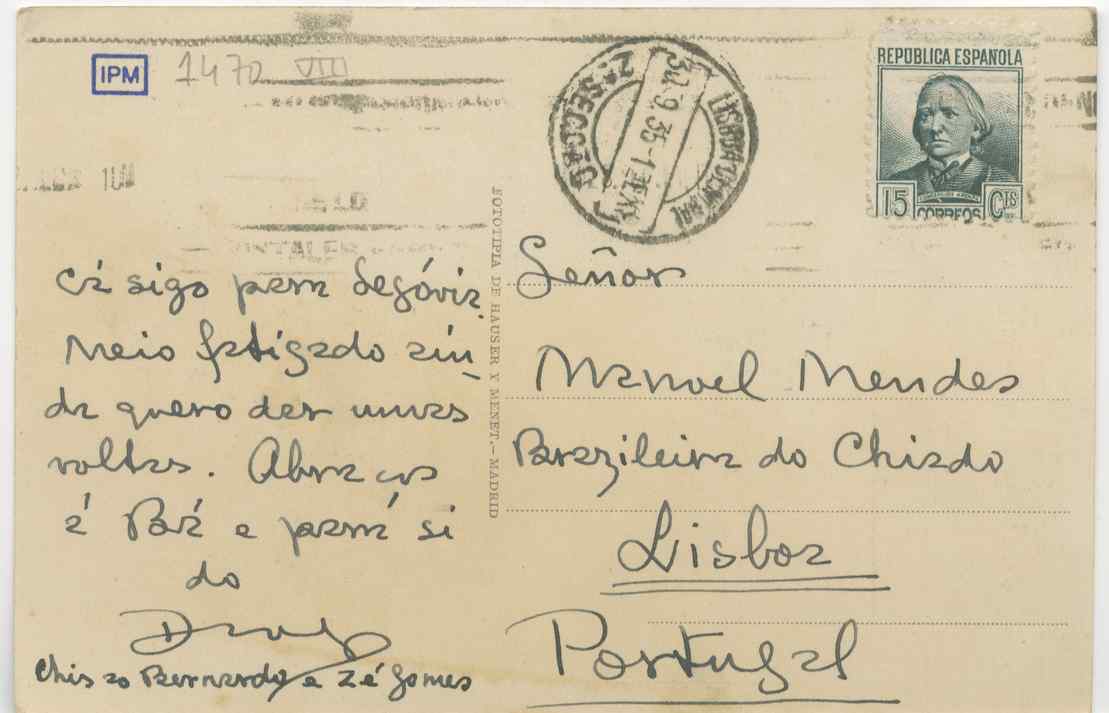 IPM 1470 VIII
LISBOA CENTRAL
2ª SECÇÃO
30.9.35-1
REPUBLICA ESPAÑOLA
15 CORREOS Cts
FOTOTIPIA DE HAUSER Y MENET.-MADRID
Cá sigo para Segóvia
Meio fatigado ain
da quero dar umas
volltas. Abraços
á Bá e para si
do
Chi
Bernardo e Zé Gomes
Señor
Manuel Mendes
Brazileira do Chiado
Lisboa
Portugal